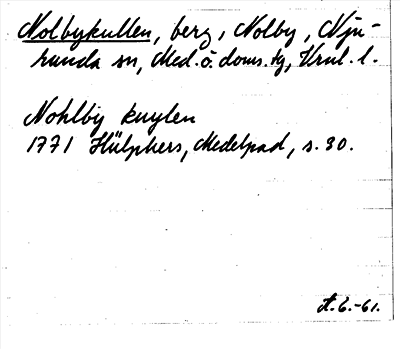 Nolbykullen, berg, Nolby, Nju-
runda sn, Med. ö. doms. tg, Vnrl. l.
Nohlby kuylen
1771 Hülphers, Medelpad, s. 30.
A. C. -61.